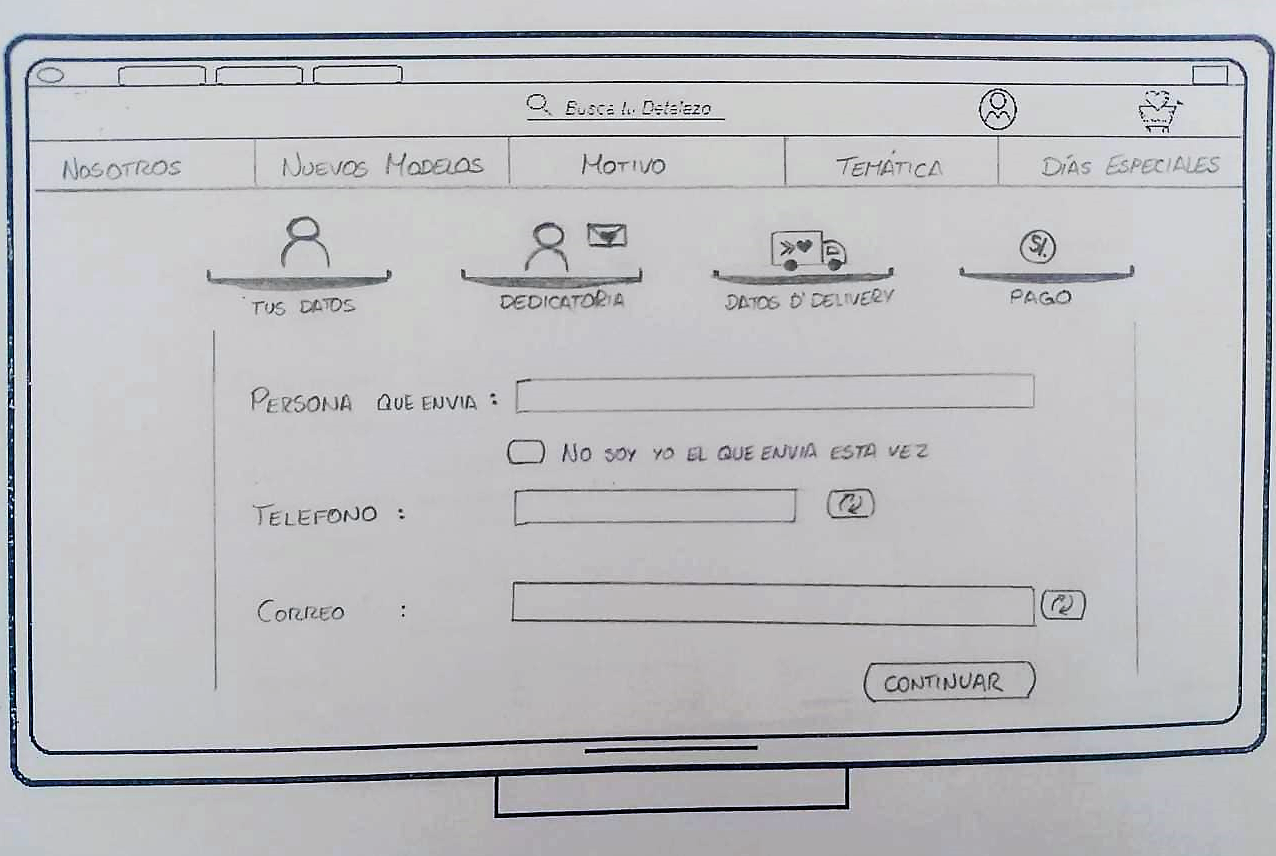 Busca tu Detalazo
NOSOTROS NUEVOS MODELOS MOTIVO TEMÁTICA DÍAS ESPECIALES
S/.
TUS DATOS DEDICATORIA DATOS D' DELIVERY PAGO
PERSONA QUE ENVIA :
NO SOY YO EL QUE ENVIA ESTA VEZ
TELEFONO :
CORREO :
CONTINUAR